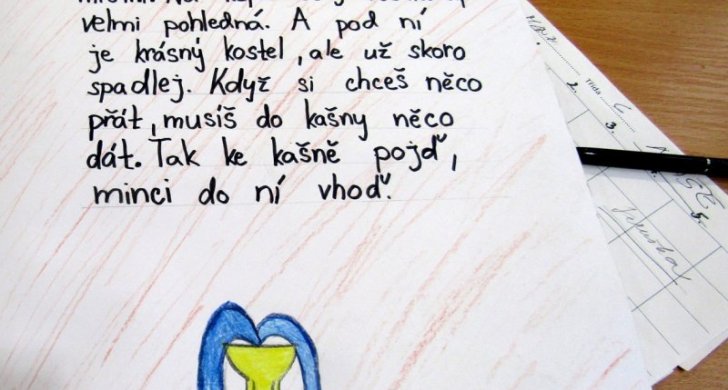 velmi pohledná. A pod ní
je krásný kostel, ale už skoro
spadlej. Když si chceš něco
přát, musíš do kašny něco
dát. Tak ke kašně pojď,
minci do ní vhoď.
2.
3.
5.